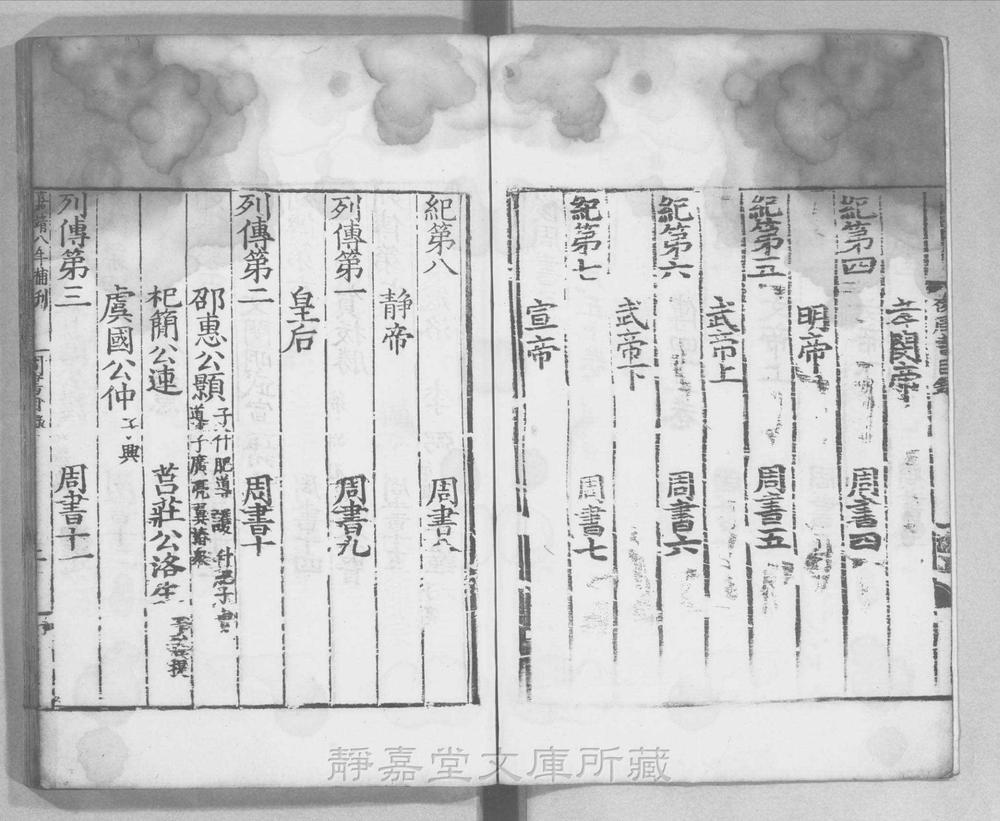 孝閔帝
紀第四 周書四
明帝
紀第五 周書五
武帝上
紀第六 周書六
武帝下
紀第七 周書七
宣帝
紀第八 周書八
靜帝
列傳第一 周書九
皇后
列傳第二 周書十
邵惠公顥 子什肥 導 護 什肥子
導子廣 亮 翼 椿 衆
杞簡公連 莒莊公洛生
虞國公仲 子興
列傳第三 周書十一
靜嘉堂文庫所藏